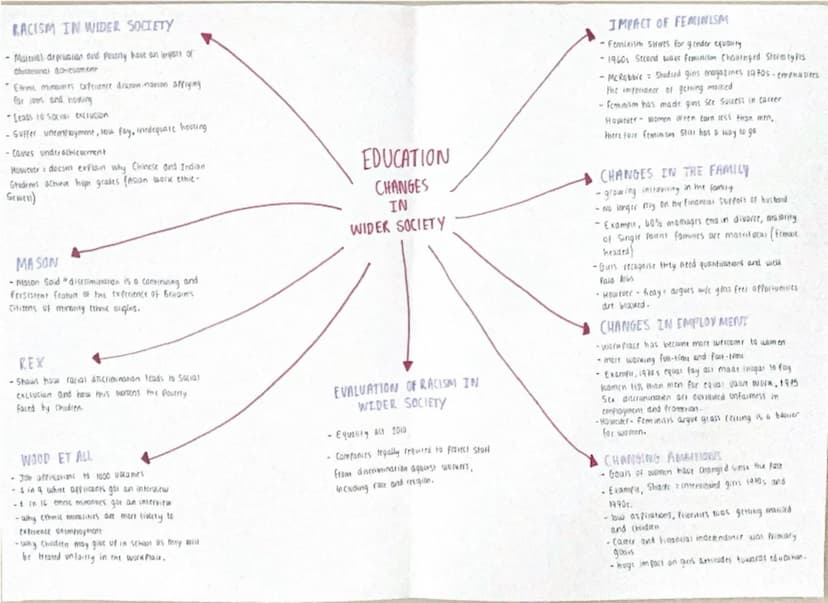 EDUCATION
CHANGES
IN
WIDER SOCIETY
RACISM IN WIDER SOCIETY
- Material deprivation and poverty have an impact of
educational achievement
- Ethnic minorities experience discrimination applying
for jobs and housing
- Leads to social exclusion
- Suffer unemployment, low pay, inadequate housing
- Causes underachievement
However: doesn't explain why Chinese and Indian
students achieve high grades (Asian work ethic-
MASON
- Mason said "discrimination is a continuing and
persistent feature of the experience of Britain's
citizens of minority ethnic origins.
REX
- Shows how racial discrimination leads to social
exclusion and how this worsens the poverty
faced by children.
WOOD ET ALL
- Job applications to 1000 vacancies
- 1 in 9 white applicants got an interview
- 1 in 16 ethnic minorities got an interview
- why ethnic minorities are more likely to
experience unemployment
- why children may give up in school as they will
be treated unfairly in the workplace.
EVALUATION OF RACISM IN
WIDER SOCIETY
- Equality Act 2010
- Companies legally required to protect staff
from discrimination against workers,
including race and religion.
IMPACT OF FEMINISM
- Feminism strives for gender equality
- 1960s second wave feminism challenged stereotypes
- McRobbie = studied girls magazines 1970s - emphasises
the importance of getting married
- Feminism has made girls see success in career
However - women often earn less than men,
therefore feminism still has a way to go
CHANGES IN THE FAMILY
- growing in the family
- no longer rely on the financial support of husband
- Example, marriages end in divorce, majority
of single parent families are matrifocal (female
headed)
- Girls recognise they need qualifications and well
paid jobs
- However - Reay = argues w/c girls feel opportunities
are blocked.
CHANGES IN EMPLOYMENT
- workplace has become more welcome to women
- more working full-time and part-time
- Example, 1970s equal pay act made illegal to pay
women less than men for equal value work, 1975
sex discrimination act outlawed unfairness in
employment and promotion.
- However - Feminists argue glass ceiling is a barrier
for women.
CHANGING AMBITIONS
- Goals of women have changed since the past
- Example, Sharpe = interviewed girls 1970s and
1990s.
- low aspirations, priorities was getting married
and children
- Career and financial independence was primary
goals
- Huge impact on girls attitudes towards education.